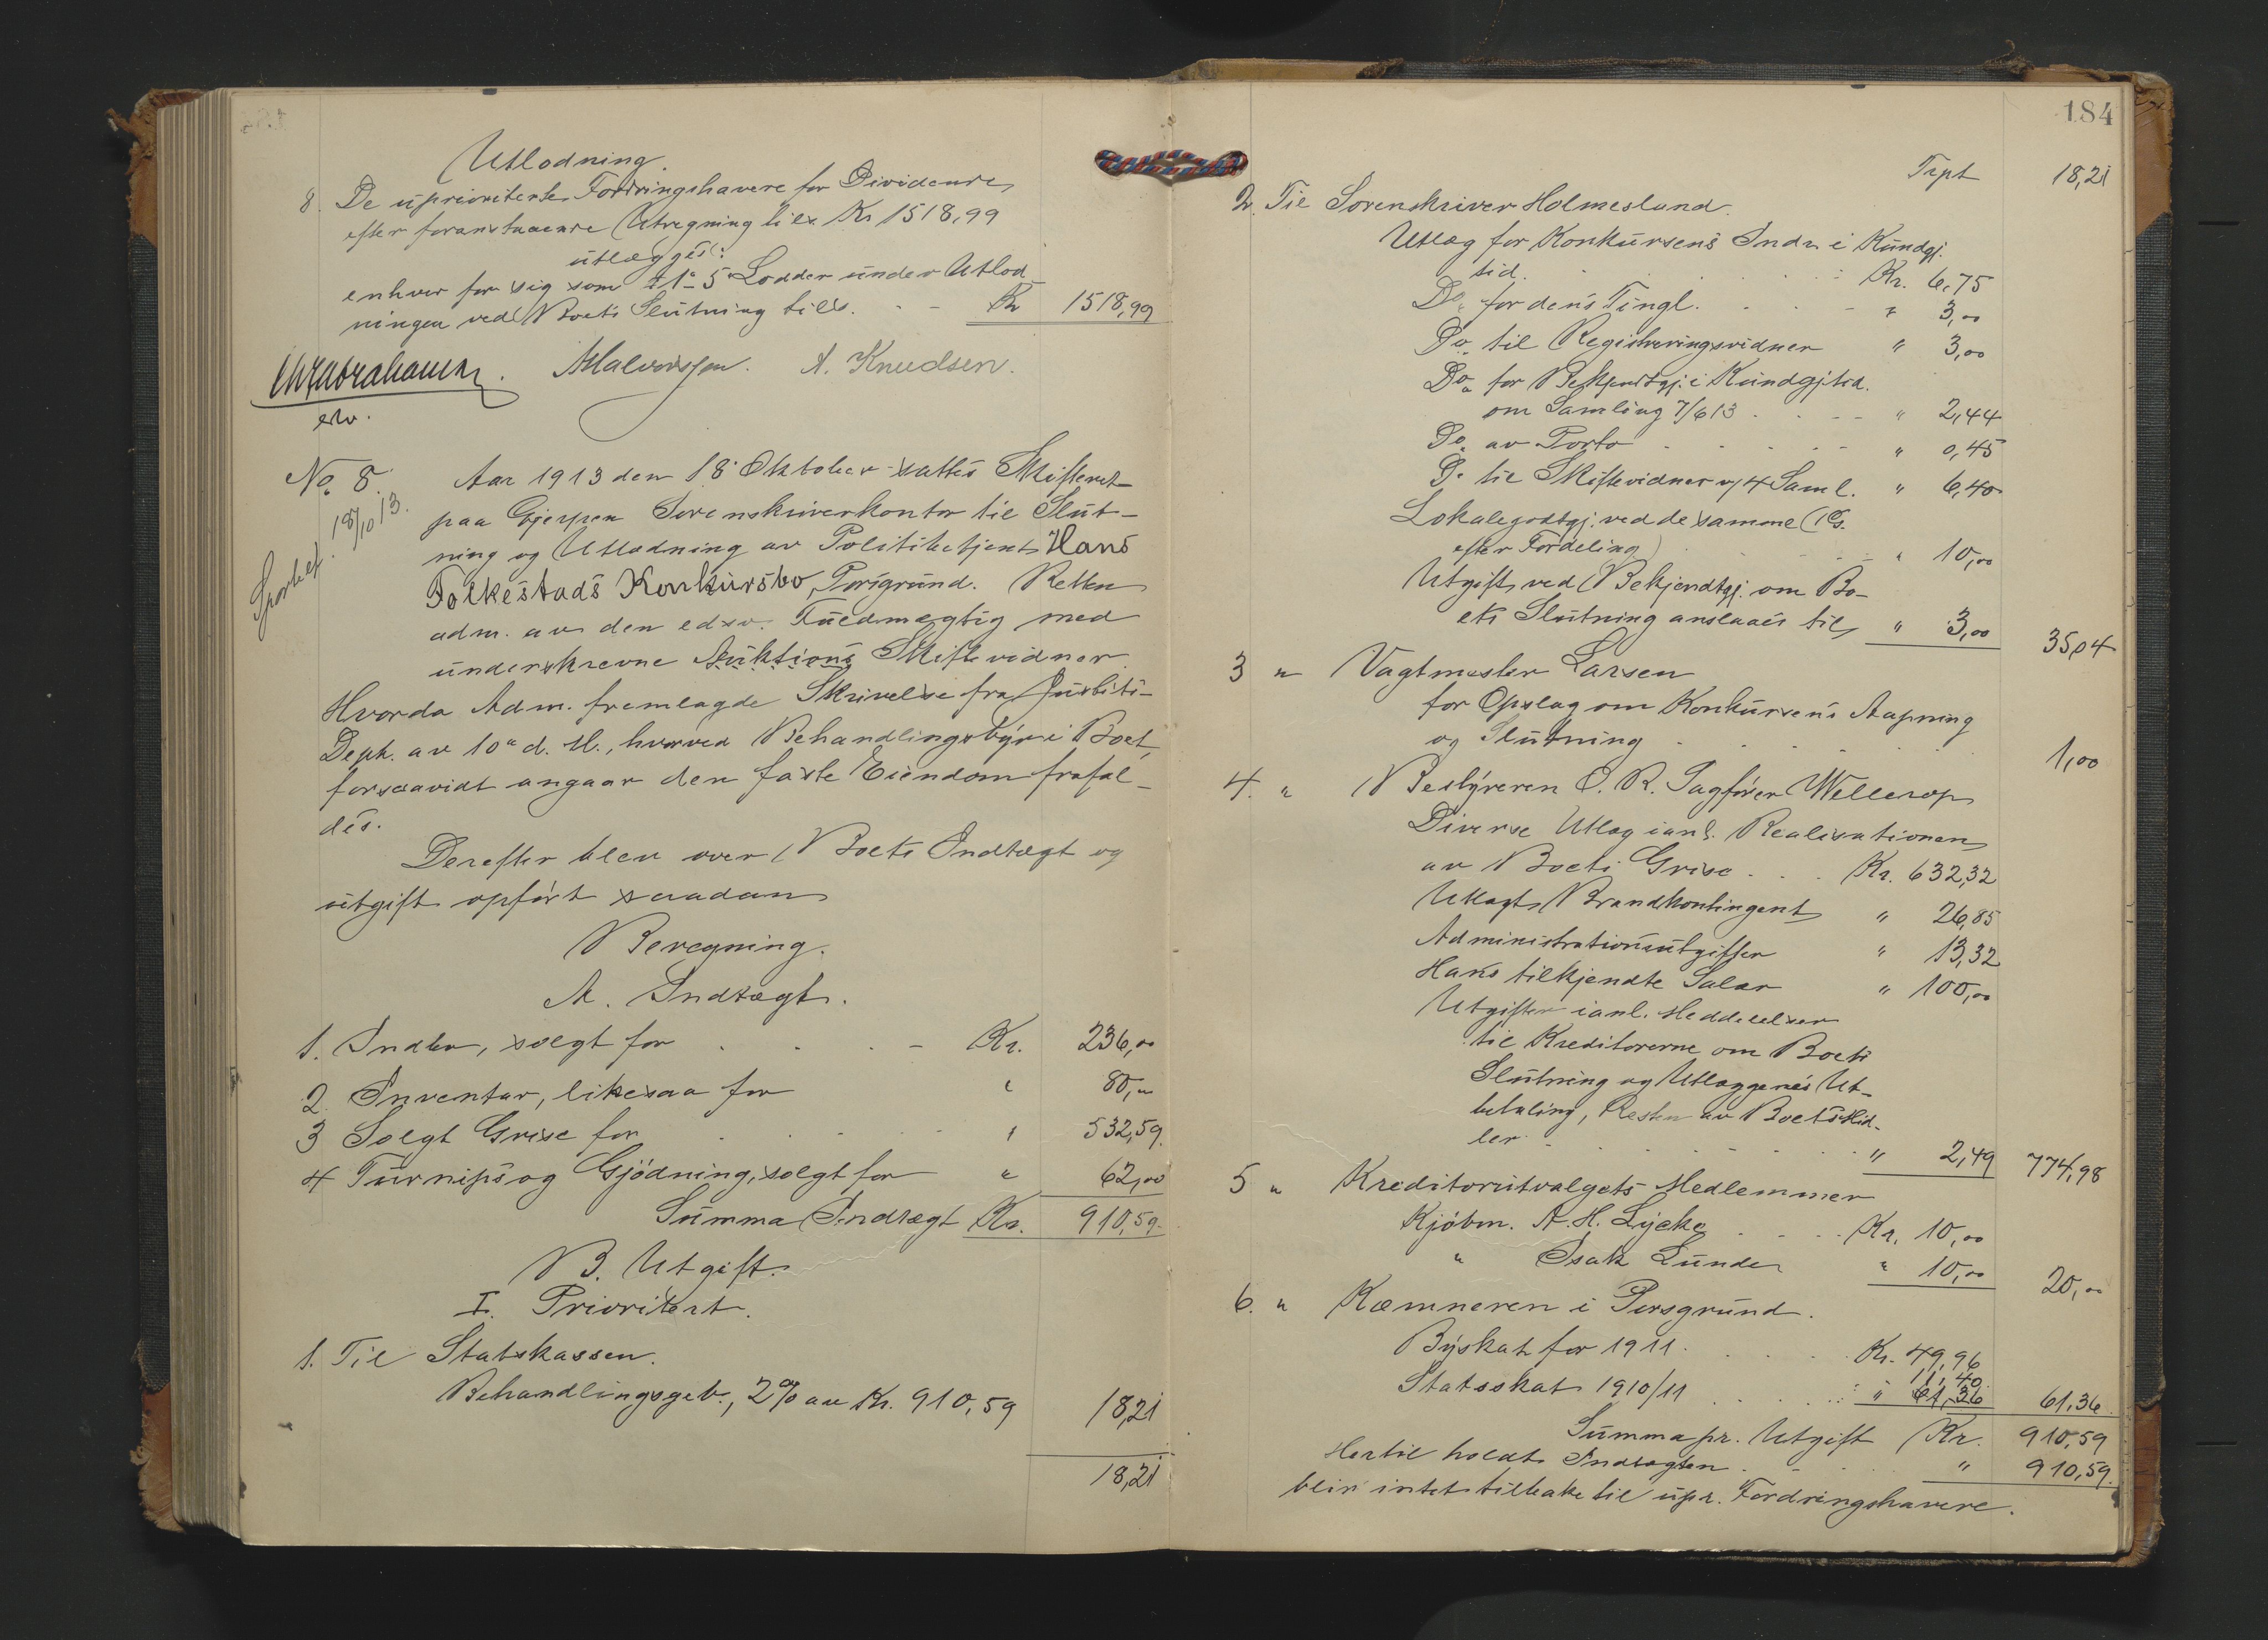 Utlodning.
8. De uprioriterte Fordringshavere for Dividende
efter foranstaaende Utregning tils. Kr 1518,99
utlægges:
enhver for sig som #1-5 Lodder under Utlod-
ningen ved Boets Slutning tils. - - Kr 1518,99
A. Knudsen.
No. 8. Aar 1913 den 18 Oktober sattes Skifteret
18/10 13.
paa Gjerpen Sorenskriverkontor til Slut-
ning og Utlodning av Politibetjent Hans
Folkestads Konkursbo, Porsgrund. Retten
adm. av den edsv. Fuldmægtig med
underskrevne Auktions Skiftevidner.
Hvorda Adm. fremlagde Skrivelse fra Justits-
Dept. av 10 d. M., hvorved Behandlingsgebyr i Boet,
forsaavidt angaar den faste Eiendom frafal-
des.
Derefter blev over Boets Indtægt og
utgift opført saadan
Beregning.
A. Indtægt.
1. Indbo, solgt for . . . - Kr. 236,00
2. Inventar, likesaa for " 80,00
3 Solgt Grise for . . . . " 532,59.
4 Turnips og Gjødning, solgt for " 62,00
Summa Indtægt Kr. 910,59.
B. Utgift.
I. Prioritert.
1. Til Statskassen.
Behandlingsgeb., 2% av Kr. 910,59 18,21
18,21
184
Trpt 18,21
2. Til Sorenskriver Holmesland.
Utlæg for Konkursens Indr. i Kundgj.
tid. . . . . Kr. 6,75
Do. for dens Tingl. . . . - " 3,00
Do. til Registreringsvidner " 3,00
Do. for Bekjendtgj. i Kundgjtid.
om Samling 7/6 13 . . - - " 2,44
Do. av Porto . . . . . " 0,45
Do til Skiftevidner v/ 4 Saml. " 6,40
Lokalegodtgj. ved de samme
efter Fordeling) . . . . " 10,00
Utgift ved Bekjendtgj. om Bo-
ets Slutning anslaaes til " 3,00 35,04
3 " Vagtmester Larsen
for Opslag om Konkursens Aapning
og Slutning . . . . . 1,00
4. " Bestyreren O. R. Sagfører Wellerop
Diverse Utlæg i anl. Realisationen
av Boets Grise . . . Kr. 632,32
Utlagt Brandkontingent " 26,85
Administrationsutgifter " 13,32
Hans tilkjendte Salær " 100,00
Utgifter i anl. Meddelelser
til Kreditorerne om Boets
Slutning og Utlæggenes Ut-
betaling, Resten av Boets Mid-
ler . . . . . . " 2,49 774,98
5 " Kreditorutvalgets Medlemmer
Kjøbm. A. H. Lycke . . . Kr. 10,00
" Isak Lunde " 10,00 20,00
6. " Kæmneren i Porsgrund.
Byskat for 1911 . . . . Kr. 49,96
11,40
Statsskat 1910/11 . . . . " 61,36 61,36
Summa pr. Utgift Kr. 910,59
Hertil holdt Indtægten . - . " 910,59.
blir intet tilbake til upr. Fordringshavere.